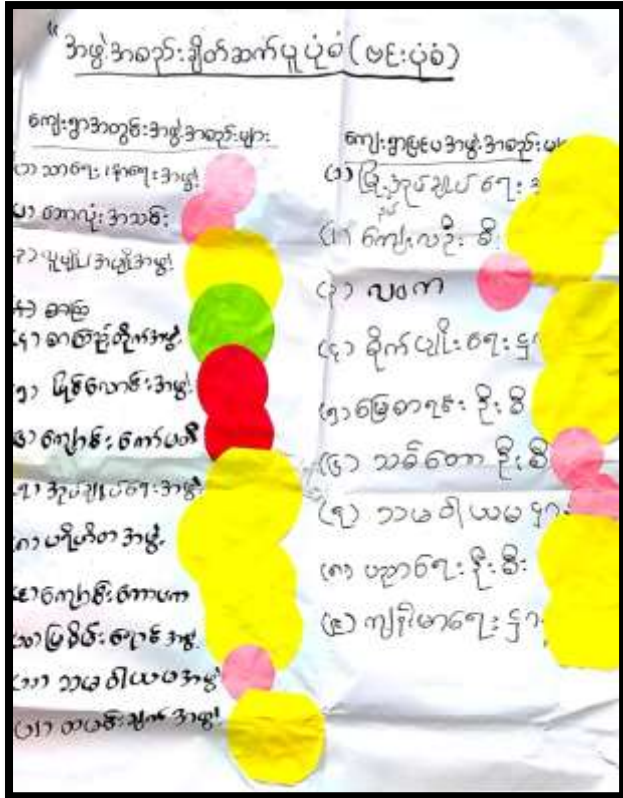 "အဖွဲ့အစည်းချိတ်ဆက်ယူပုံစံ(ဗင်းပုံစံ)
ကျေးရွာအတွင်းအဖွဲ့အစည်းများ
(၁) သာရေး၊နာရေးအဖွဲ့
(၂) ဘောလုံးအသင်း
(၃) အဖွဲ့
(၄) စာကြ
(၄) စာကြည့်တိုက်အဖွဲ့
(၅) အဖွဲ့
(၆) ကျောင်းကော်မတီ
(၇) အုပ်ချုပ်ရေးအဖွဲ့
(၈) ပရိဟိတအဖွဲ့
(၉) ကျောင်း
(၁၀) မြစိမ်းရောင်အဖွဲ့
(၁၁) ဘမ အဖွဲ့
(၁၂) ထမင်းချက်အဖွဲ့
ကျေးရွာပြင်ပအဖွဲ့အစည်း
(၁) အုပ်ချုပ်ရေး
(၂) ကျေးလဦးစီး
(၃) လဝက
(၄) စိုက်ပျိုးရေးဌာ
(၅) မြေစာရင်းဦးစီ
(၆) သစ်တောဦးစီ
(၇)
(၈) ပညာရေးဦးစီး
(၉) ကျန်းမာရေးဌာ